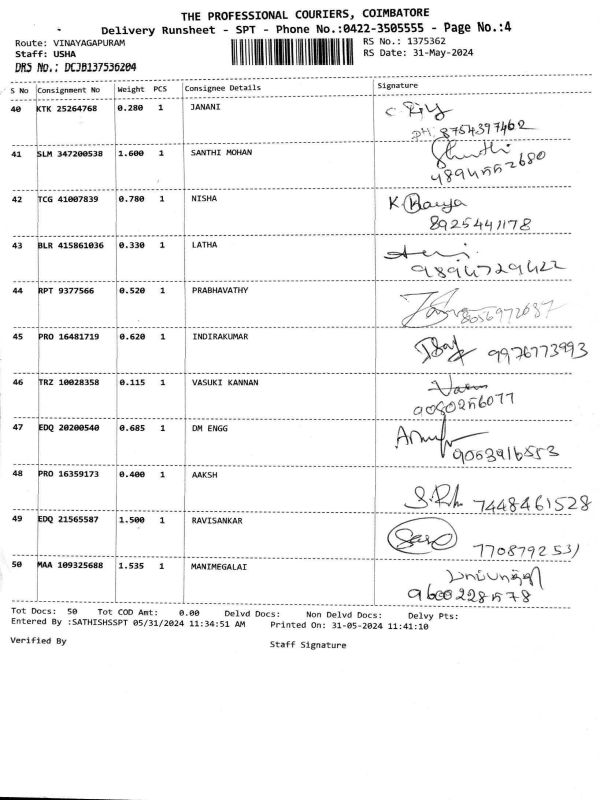 THE PROFESSIONAL COURIERS, COIMBATORE
Delivery Runsheet - SPT - Phone No.:0422-3505555 - Page No.:4
Route: VINAYAGAPURAM RS No.: 1375362
Staff: USHA RS Date: 31-May-2024
DRS No.: DCJB137536204
S No Consignment No Weight PCS Consignee Details Signature
40 KTK 25264768 0.280 1 JANANI
PH: 8754397462
41 SLM 347200538 1.600 1 SANTHI MOHAN
42 TCG 41007839 0.780 1 NISHA
8925441178
43 BLR 415861036 0.330 1 LATHA
9894729422
44 RPT 9377566 0.520 1 PRABHAVATHY
45 PRO 16481719 0.620 1 INDIRAKUMAR
9976773993
46 TRZ 10028358 0.115 1 VASUKI KANNAN
47 EDQ 20200540 0.685 1 DM ENGG
48 PRO 16359173 0.400 1 AAKSH
7448461528
49 EDQ 21565587 1.500 1 RAVISANKAR
7708792531
50 MAA 109325688 1.535 1 MANIMEGALAI
Tot Docs: 50 Tot COD Amt: 0.00 Delvd Docs: Non Delvd Docs: Delvy Pts:
Entered By :SATHISHSSPT 05/31/2024 11:34:51 AM Printed On: 31-05-2024 11:41:10
Verified By Staff Signature